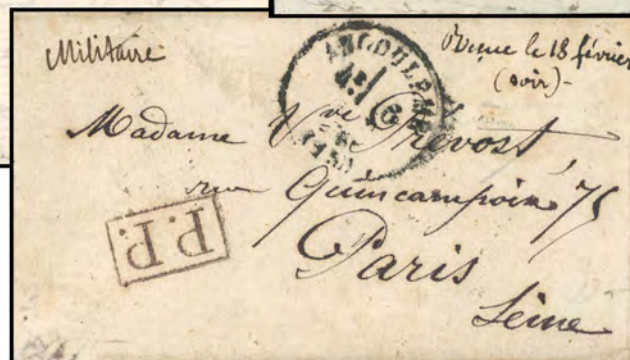 Militaire
ANGOULEME
le 18 février
(soir)-
Madame Vve Prevost
rue Quincampoix 75
P.P.
Paris
Seine